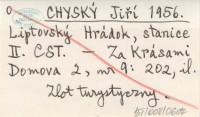 CHYSKÝ Jiří 1956.
Liptovský Hrádok, stanice
II. CST. — Za Krásami
Domova 2, nr 9: 202, il.
Zlot turystyczny.